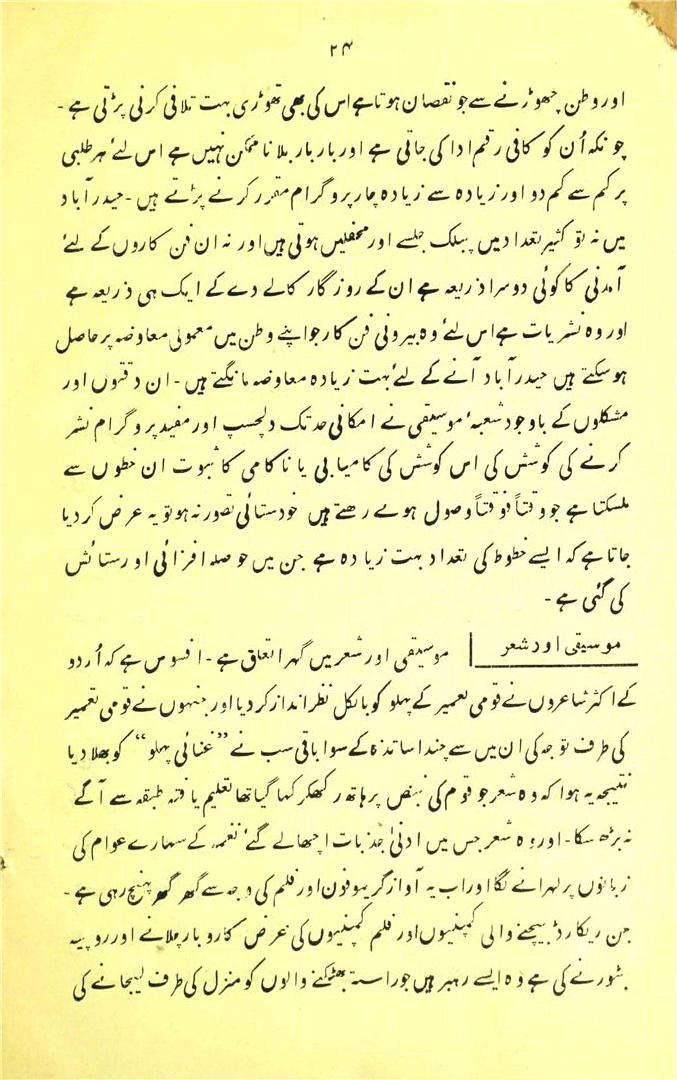 ۲۴
اور وطن چھوڑنے سے جو نقصان ہوتا ہے اس کی بھی تھوڑی بہت تلافی کرنی پڑتی ہے۔
چونکہ اُن کو کافی رقم ادا کی جاتی ہے اور بار بار بلانا ممکن نہیں ہے اس لئے ہر طلبی
پر کم سے کم دو اور زیادہ سے زیادہ چار پروگرام مقرر کرنے پڑتے ہیں۔ حیدرآباد
میں نہ تو کثیر تعداد میں پبلک جلسے اور محفلیں ہوتی ہیں اور نہ ان فن کاروں کے لئے
آمدنی کا کوئی دوسرا ذریعہ ہے ان کے روزگار کا لے دے کے ایک ہی ذریعہ ہے
اور وہ نشریات ہے اس لئے وہ بیرونی فن کار جو اپنے وطن میں معمولی معاوضہ پر حاصل
ہو سکتے ہیں حیدرآباد آنے کے لئے بہت زیادہ معاوضہ مانگتے ہیں۔ ان دقتوں اور
مشکلوں کے باوجود شعبۂ موسیقی نے امکانی حد تک دلچسپ اور مفید پروگرام نشر
کرنے کی کوشش کی اس کوشش کی کامیابی یا ناکامی کا ثبوت ان خطوں سے
ملسکتا ہے جو وقتاً فوقتاً وصول ہوے رہتے ہیں خود ستائی تصور نہ ہو تو یہ عرض کر دیا
جاتا ہے کہ ایسے خطوط کی تعداد بہت زیادہ ہے جن میں حوصلہ افزائی اور ستائش
کی گئی ہے۔
موسیقی اور شعر | موسیقی اور شعر میں گہرا تعلق ہے۔ افسوس ہے کہ اُردو
کے اکثر شاعروں نے قومی تعمیر کے پہلو کو بالکل نظر انداز کر دیا اور جنہوں نے قومی تعمیر
کی طرف توجہ کی ان میں سے چند اساتذہ کے سوا باقی سب نے ”غنائی پہلو“ کو بھلا دیا
نتیجہ یہ ہوا کہ وہ شعر جو قوم کی نبض پر ہاتھ رکھکر کہا گیا تھا تعلیم یافتہ طبقہ سے آگے
نہ بڑھ سکا۔ اور وہ شعر جس میں ادنیٰ جذبات اچھالے گئے نغمہ کے سہارے عوام کی
زبانوں پر لہرانے لگا اور اب یہ آواز گریموفون اور فلم کی وجہ سے گھر گھر پہنچ رہی ہے۔
جن ریکارڈ بیچنے والی کمپنیوں اور فلم کمپنیوں کی غرض کاروبار چلانے اور روپیہ
بٹورنے کی ہے وہ ایسے رہبر ہیں جو راستہ بھٹکنے والوں کو منزل کی طرف لیجانے کی